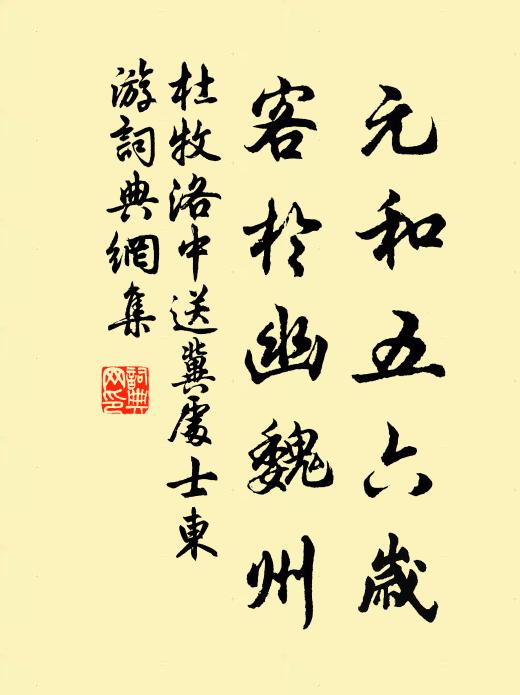 元和五六歲
客於幽魏州
杜牧洛中送冀處士東
游詞典網集
詞典
网印